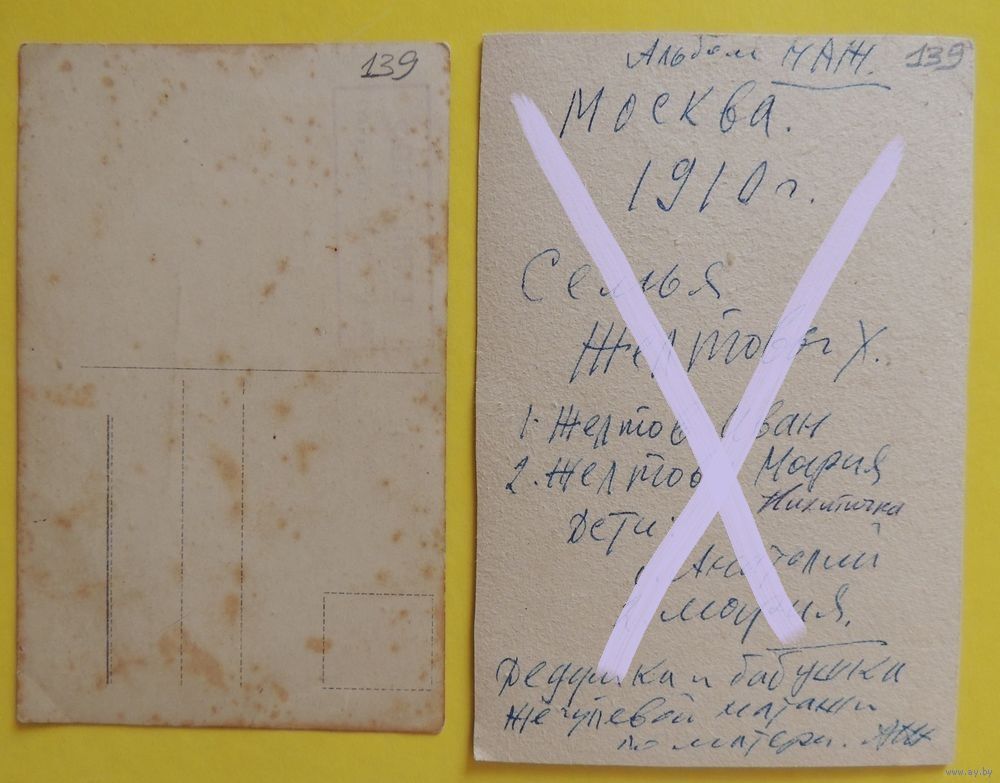 139
Альбом НАЖ. 139
Москва.
1910 г.
Семья
Желтовых.
1. Желтов Иван
2. Желтова Мария
Никитична
Дети:
Анатолий
Мария.
Дедушка и бабушка
Наташи
по матери.
www.ay.by